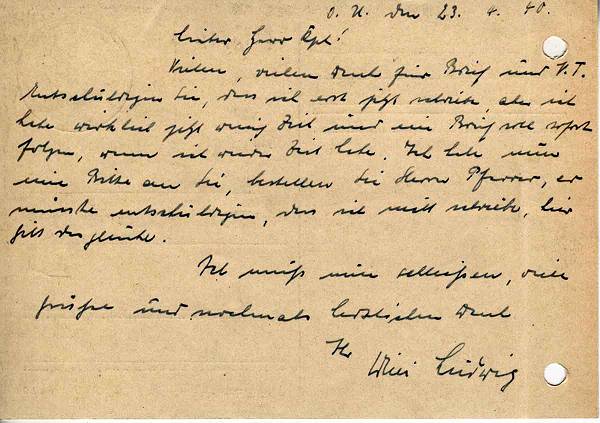 O. U. den 23. 4. 40.
Lieber Herr Kpl!
Vielen, vielen Dank für Brief und N.T.
Entschuldigen Sie, dass ich erst jetzt schreibe, aber ich
habe wirklich jetzt wenig Zeit und ein Brief soll sofort
folgen, wenn ich wieder Zeit habe. Ich habe nun
eine Bitte an Sie, bestellen Sie Herrn Pfarrer, er
müsste entschuldigen, dass ich nicht schreibe, hier
gilt das gleiche.
Ich muß nun schließen, viele
Grüsse und nochmals herzlichen Dank
Ihr
Willi Ludwig